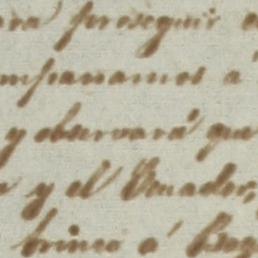 para proseguir a
mpanamos á
y observará que
y el Ecuador,
brinco á Bog